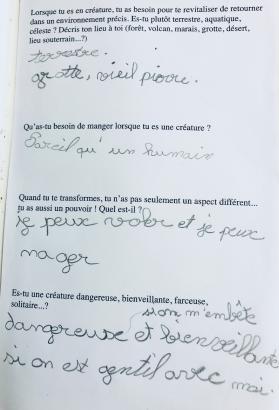 Lorsque tu es en créature, tu as besoin pour te revitaliser de retourner
dans un environnement précis. Es-tu plutôt terrestre, aquatique,
céleste ? Décris ton lieu à toi (forêt, volcan, marais, grotte, désert,
lieu souterrain...?)
terrestre.
grotte, vieil pierre.
Qu'as-tu besoin de manger lorsque tu es une créature ?
Pareil qu'un humain
Quand tu te transformes, tu n'as pas seulement un aspect différent...
tu as aussi un pouvoir ! Quel est-il ?
je peux voler et je peux
nager
Es-tu une créature dangereuse, bienveillante, farceuse,
solitaire...?
si on m'embête
dangereuse et bienveillante
si on est gentil avec moi.